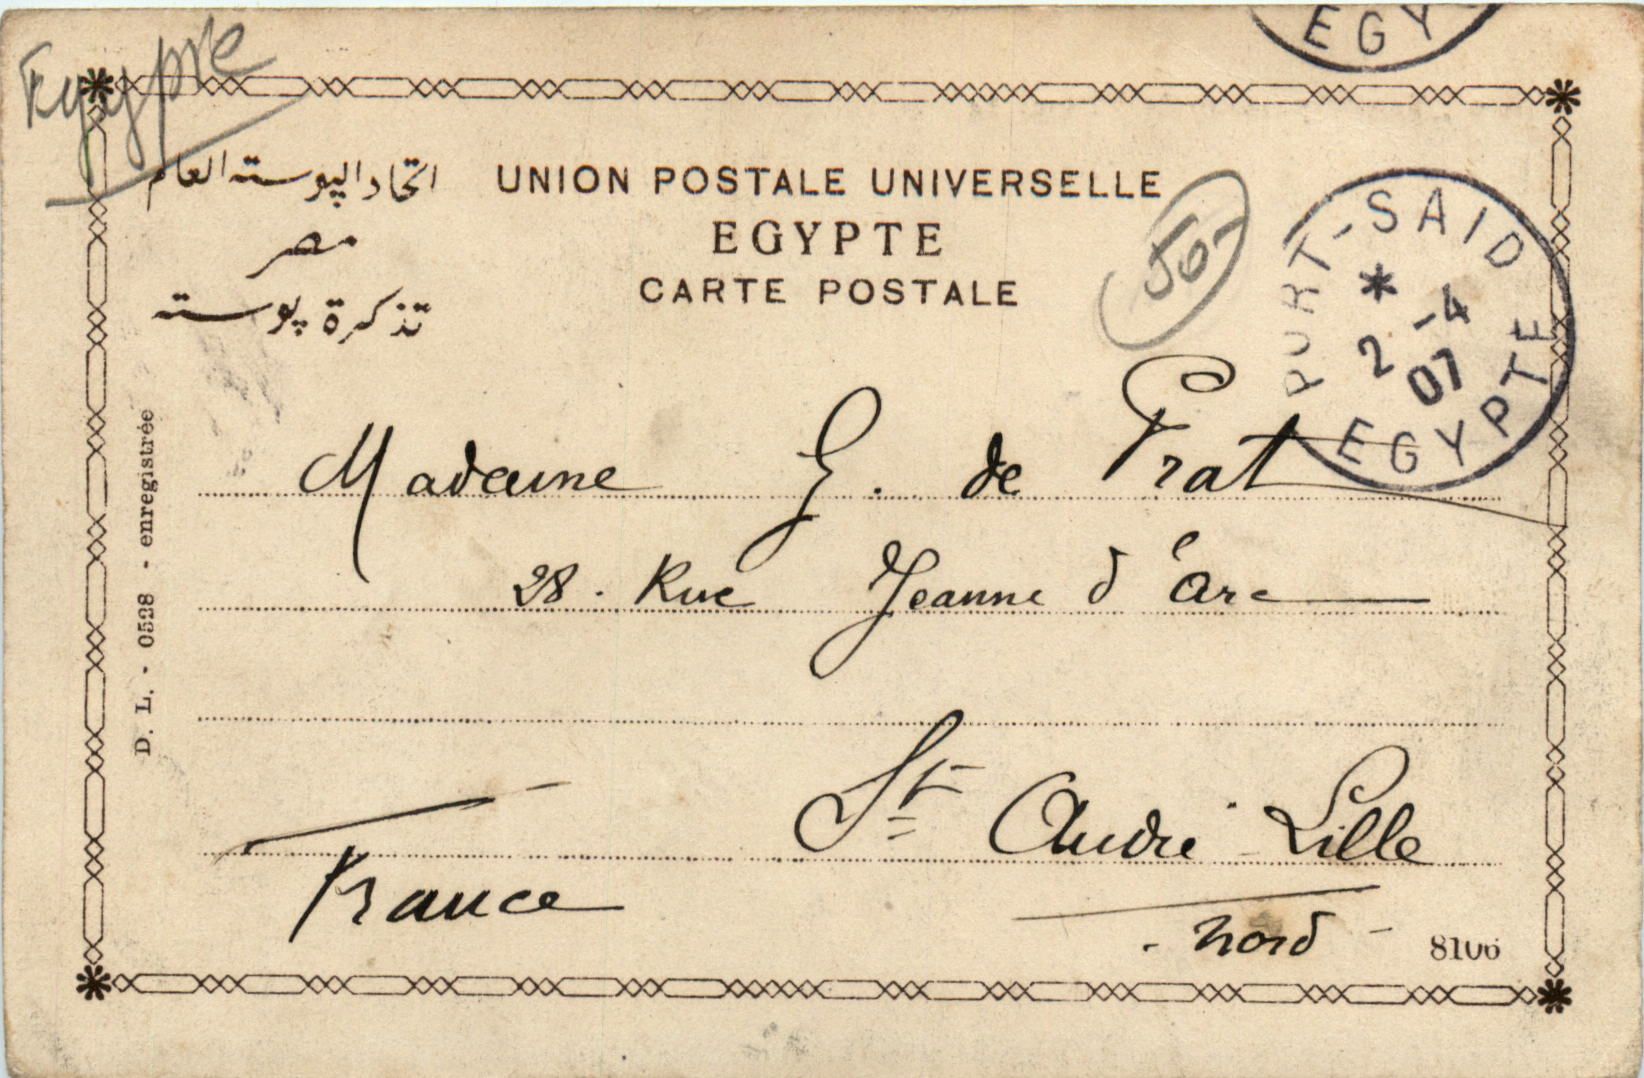 Egypte
EGY
اتحاد الپوسته العام
مصر
تذكرة پوسته
UNION POSTALE UNIVERSELLE
EGYPTE
CARTE POSTALE
50-
PORT-SAID
2 -4
07
EGYPTE
D. L. - 0528 - enregistrée
Madame G. de Prat
28. Rue Jeanne d'Arc
St André Lille
France
- Nord -
8106